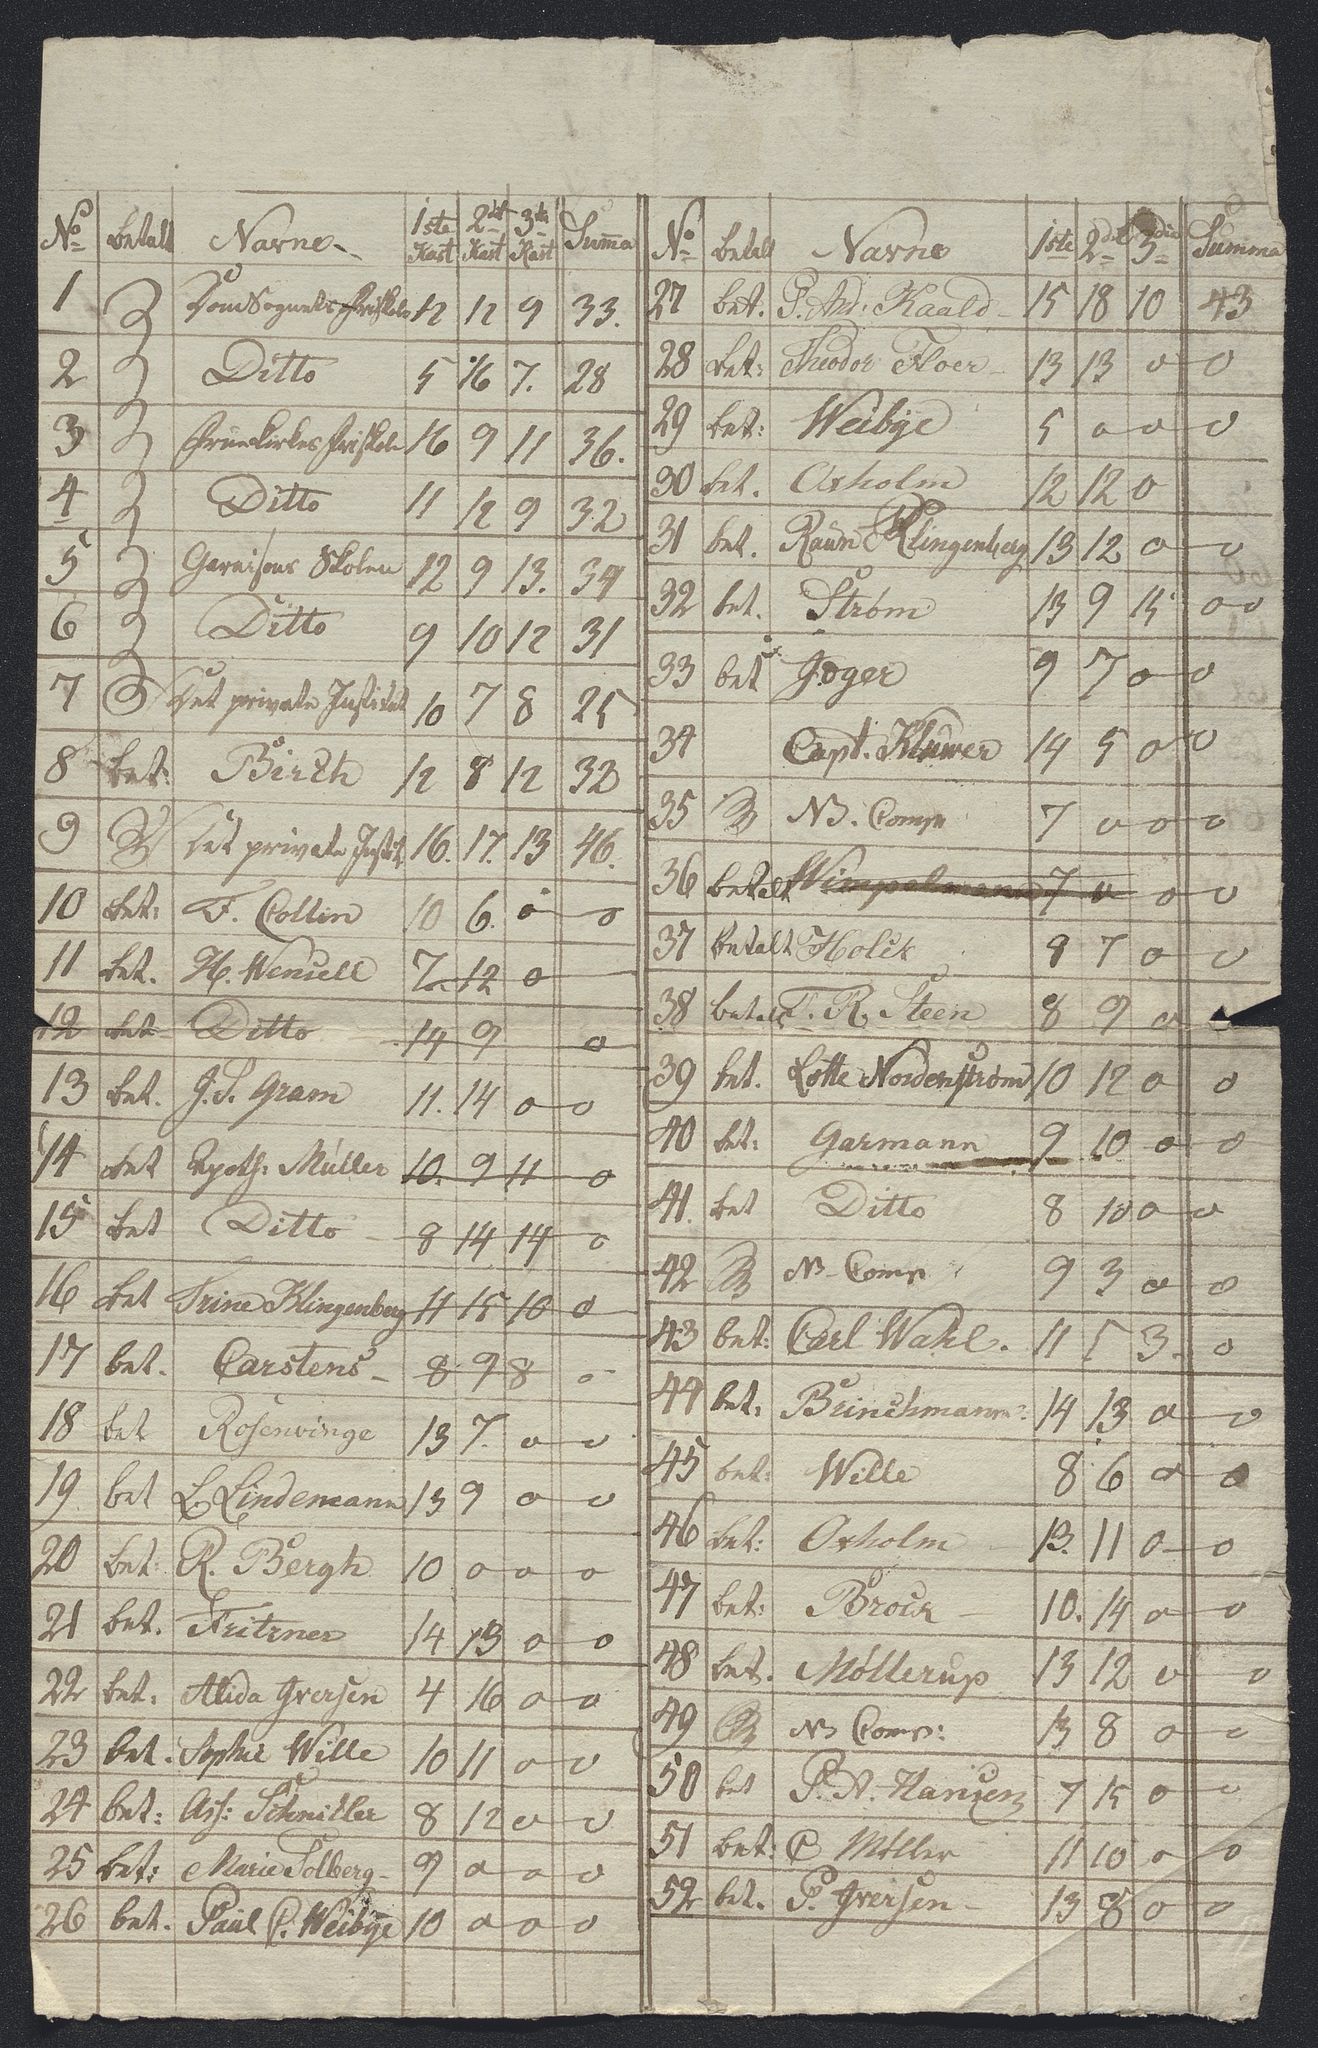 No betalt Navne 1ste Kast 2det Kast 3die Kast Summa
1 DomSognets Friskole 12 12 9 33.
2 Ditto 5 16 7. 28
3 Fruekirkes Friskole 16 9 11 36.
4 Ditto 11 12 9 32
5 Garnisons Skolen 12 9 13. 34
6 Ditto 9 10 12 31
7 Det private Institut 10 7 8 25
8 bet: Birch 12 8 12 32
9 Det private Instit. 16. 17. 13 46.
10 bet: F. Collin 10 6. o o
11 bet. H. Wensell 7. 12 o
12 bet Ditto 14 9 o
13 bet. J. S. Gram 11. 14 o o
14 bet Apoth: Müller 10. 9 11 o
15 bet Ditto 8 14 14 o
16 bet Trine Klingenberg 11 15 10 o
17 bet. Carstens 8 9 8 o
18 bet Rosenvinge 13 7. o o
19 bet L. Lindemann 13 9 o o
20 bet: R. Bergh 10 o o o
21 bet. Fritzner 14 13 o o
22 bet: Alida Iversen 4 16 o o
23 bet. Sophie Wille 10 11 o o
24 bet: Ass: Schnitler 8 12 o o
25 bet: Marie Solberg 9 o o o
26 bet. Paul C. Weibye 10 o o o
No betalt Navne 1ste 2det 3die Summa
27 bet. P. And: Kaald 15 18 10 43
28 bet: Theodor Floer 13 13 o o
29 bet: Weibye 5 o o o
30 bet. Oxholm 12 12 o
31 bet. Raün Klingenberg 13 12 o o
32 bet. Strøm 13 9 15 o o
33 bet Jæger 9 7 o o
34 Capt. Klüwer 14 5 o o
35 NB. Comp 7 o o o
36 betalt Wimpelmann 7 o o o
37 betalt Holck 8 7 o o
38 betalt F. R. Steen 8 9 o o
39 bet. Lotte Nordenstrøm 10 12 o o
40 bet: Garmann 9 10 o o
41. bet Ditto 8 10 o o
42 NB Comp 9 3 o o
43 bet: Carl Wahl. 11 5 3. o
44 bet: Brinchmann 14 13 o o
45 bet: Wille 8 6 o o
46 bet: Oxholm 13. 11 o o
47 bet: Brock 10. 14 o o
48 bet. Møllerup 13 12 o o
49 NB Comp: 13 8 o o
50 bet P. A. Hansen 7 15 o o
51 bet: C Møller 11 10 o o
52 bet. P. Iversen 13 8 o o